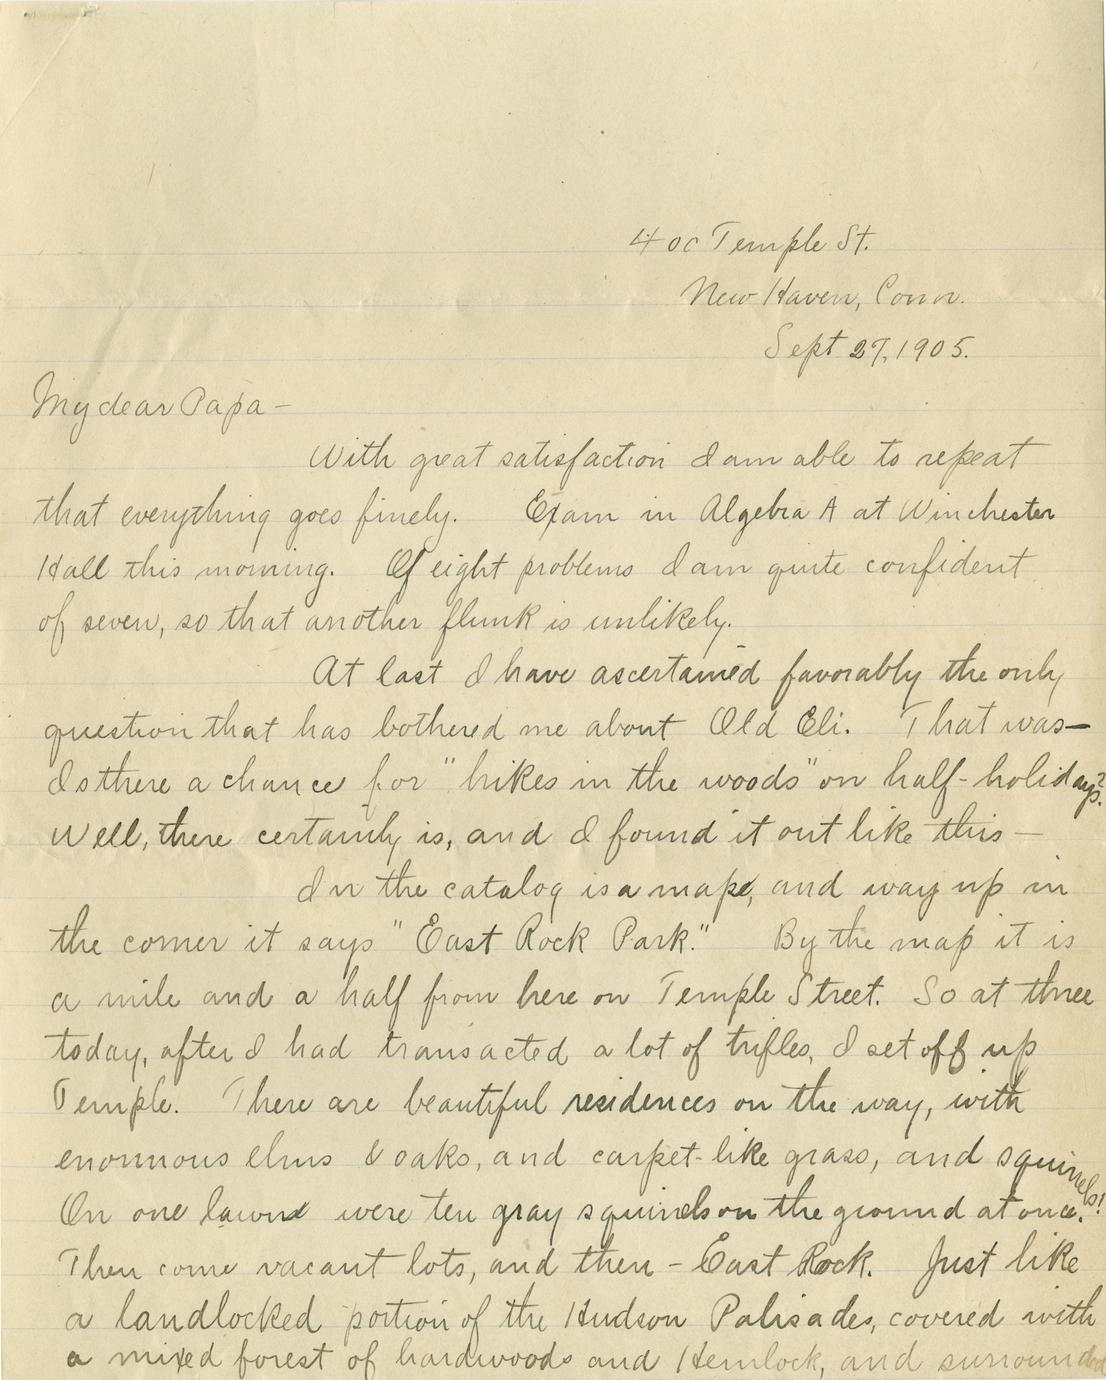 400 Temple St.
New Haven, Conn.
Sept 27, 1905.
My dear Papa —
With great satisfaction I am able to repeat
that everything goes finely. Exam in Algebra A at Winchester
Hall this morning. Of eight problems I am quite confident
of seven, so that another flunk is unlikely.
At last I have ascertained favorably the only
question that has bothered me about Old Eli. That was—
Is there a chance for "hikes in the woods" on half-holidays?
Well, there certainly is, and I found it out like this —
In the catalog is a map, and way up in
the corner it says "East Rock Park." By the map it is
a mile and a half from here on Temple Street. So at three
today, after I had transacted a lot of trifles, I set off up
Temple. There are beautiful residences on the way, with
enormous elms & oaks, and carpet-like grass, and squirrels!
On one lawn were ten gray squirrels on the ground at once.
Then come vacant lots, and then – East Rock. Just like
a landlocked portion of the Hudson Palisades, covered with
a mixed forest of hardwoods and Hemlock, and surrounded